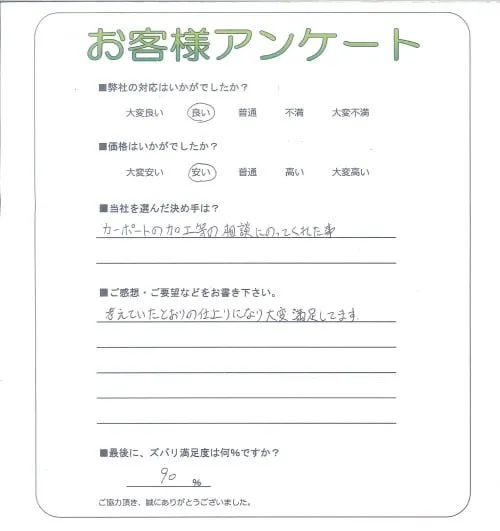 お客様アンケート
■弊社の対応はいかがでしたか？
大変良い 良い 普通 不満 大変不満
■価格はいかがでしたか？
大変安い 安い 普通 高い 大変高い
■当社を選んだ決め手は？
カーポートの加工等の相談にのってくれた事
■ご感想・ご要望などをお書き下さい。
考えていたとおりの仕上りになり大変満足してます.
■最後に、ズバリ満足度は何%ですか？
90 %
ご協力頂き、誠にありがとうございました。